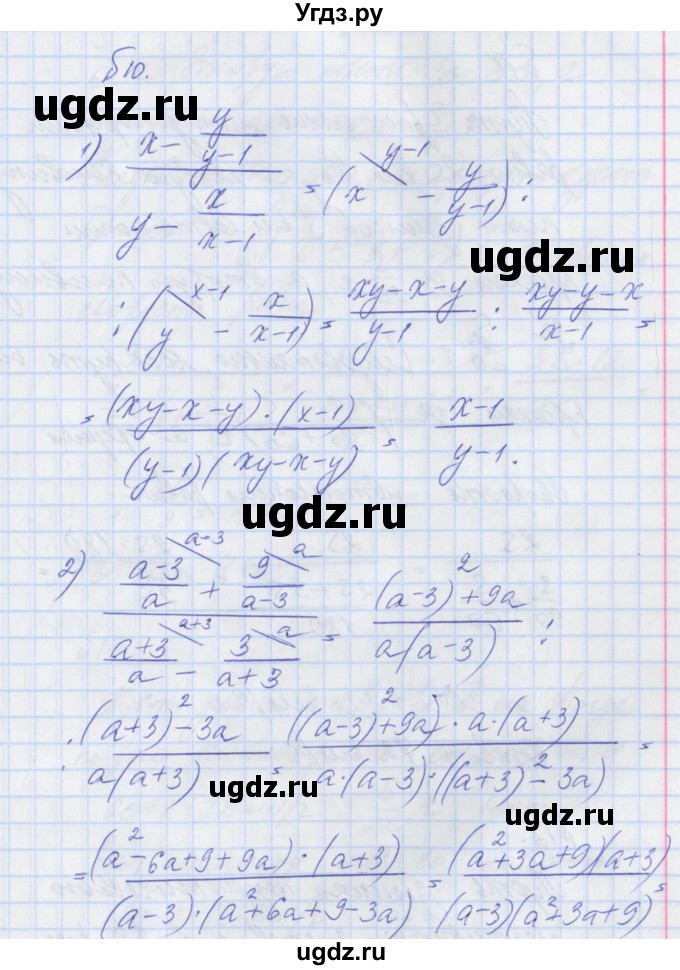 Угдз.ру
§10.
ugdz.ru
1) (x - y/(y-1)) / (y - x/(x-1)) = (x^{y-1} - y/(y-1)) :
ugdz.ru
: (y^{x-1} - x/(x-1)) = (xy-x-y)/(y-1) : (xy-y-x)/(x-1) =
ugdz.ru
= ((xy-x-y)·(x-1))/((y-1)(xy-x-y)) = (x-1)/(y-1).
ugdz.ru
2) ((a-3)/a^{a-3} + 9/(a-3)^{a}) / ((a+3)/a^{a+3} - 3/(a+3)^{a}) = ((a-3)²+9a)/(a(a-3)) :
ugdz.ru
: ((a+3)²-3a)/(a(a+3)) = (((a-3)²+9a)·a·(a+3))/(a·(a-3)·((a+3)²-3a)) =
ugdz.ru
ugdz.ru
= ((a²-6a+9+9a)·(a+3))/((a-3)·(a²+6a+9-3a)) = ((a²+3a+9)(a+3))/((a-3)(a²+3a+9)) =
ugdz.ru